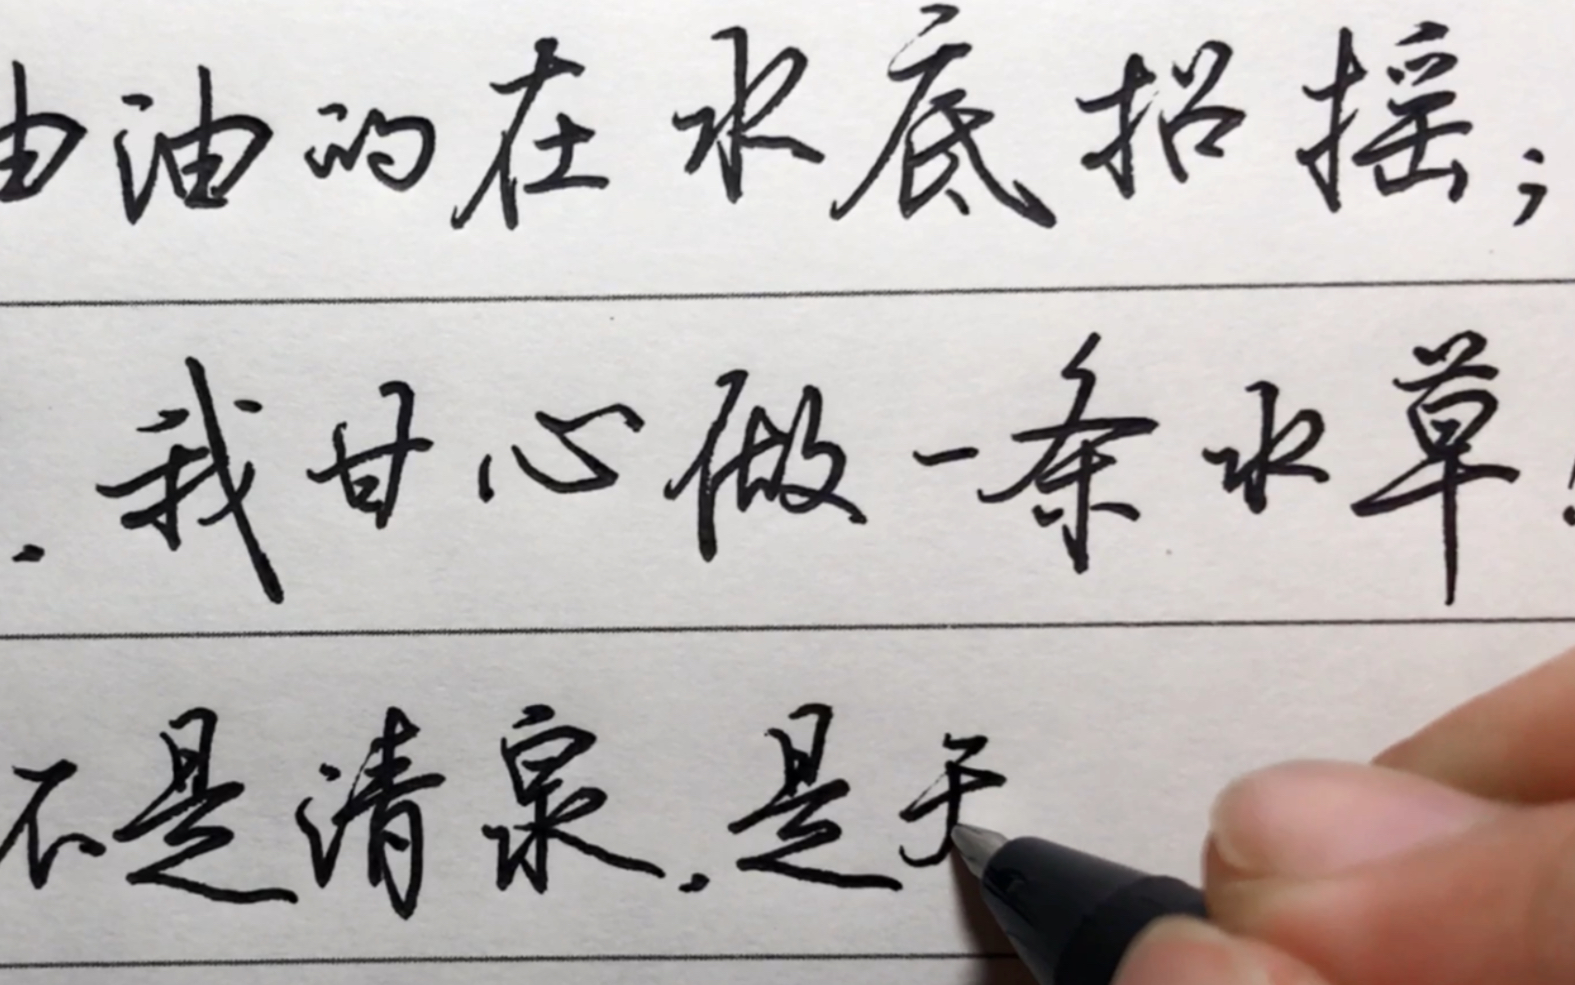 油油的在水底招摇；
.我甘心做一条水草!
不是清泉.是